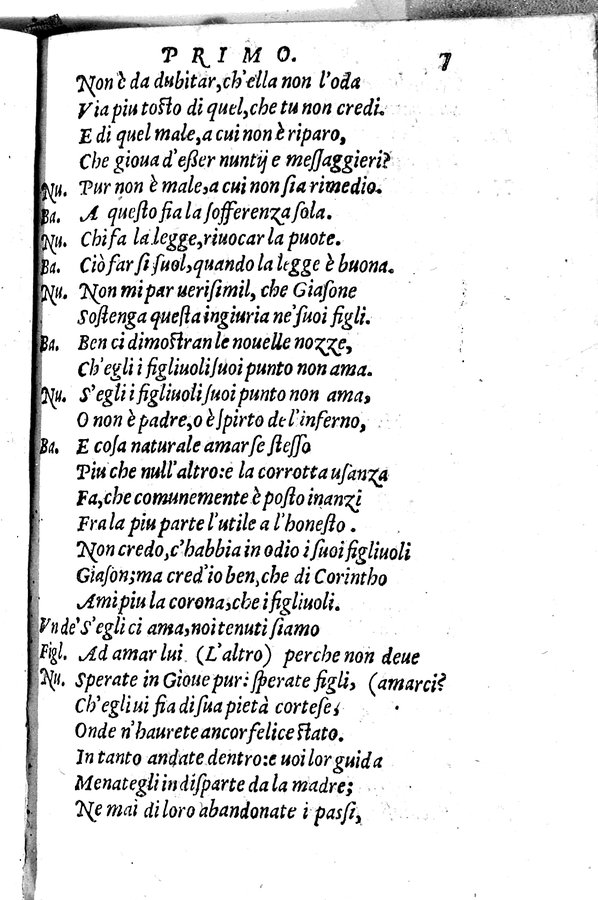 PRIMO. 7
Non è da dubitar, ch'ella non l'oda
Via piu tosto di quel, che tu non credi.
E di quel male, a cui non è riparo,
Che gioua d'eßer nuntij e meſſaggieri?
Nu. Pur non è male, a cui non ſia rimedio.
Ba. A queſto fia la ſofferenza ſola.
Nu. Chi fa la legge, riuocar la puote.
Ba. Ciò far ſi ſuol, quando la legge è buona.
Nu. Non mi par ueriſimil, che Giaſone
Soſtenga queſta ingiuria ne' ſuoi figli.
Ba. Ben ci dimostran le nouelle nozze,
Ch'egli i figliuoli ſuoi punto non ama.
Nu. S'egli i figliuoli ſuoi punto non ama,
O non è padre, o è ſpirto del'inferno,
Ba. E coſa naturale amar ſe ſteſſo
Piu che null'altro: e la corrotta uſanza
Fa, che comunemente è poſto inanzi
Fra la piu parte l'utile a l'honeſto.
Non credo, c'habbia in odio i ſuoi figliuoli
Giaſon; ma cred'io ben, che di Corintho
Ami piu la corona, che i figliuoli.
Vn de' S'egli ci ama, noi tenuti ſiamo
Figl. Ad amar lui (L'altro) perche non deue
Nu. Sperate in Gioue pur: ſperate figli, (amarci?
Ch'egli ui fia di ſua pietà corteſe;
Onde n'haurete ancor felice stato.
In tanto andate dentro: e uoi lor guida
Menategli in diſparte da la madre;
Ne mai di loro abandonate i paſſi,